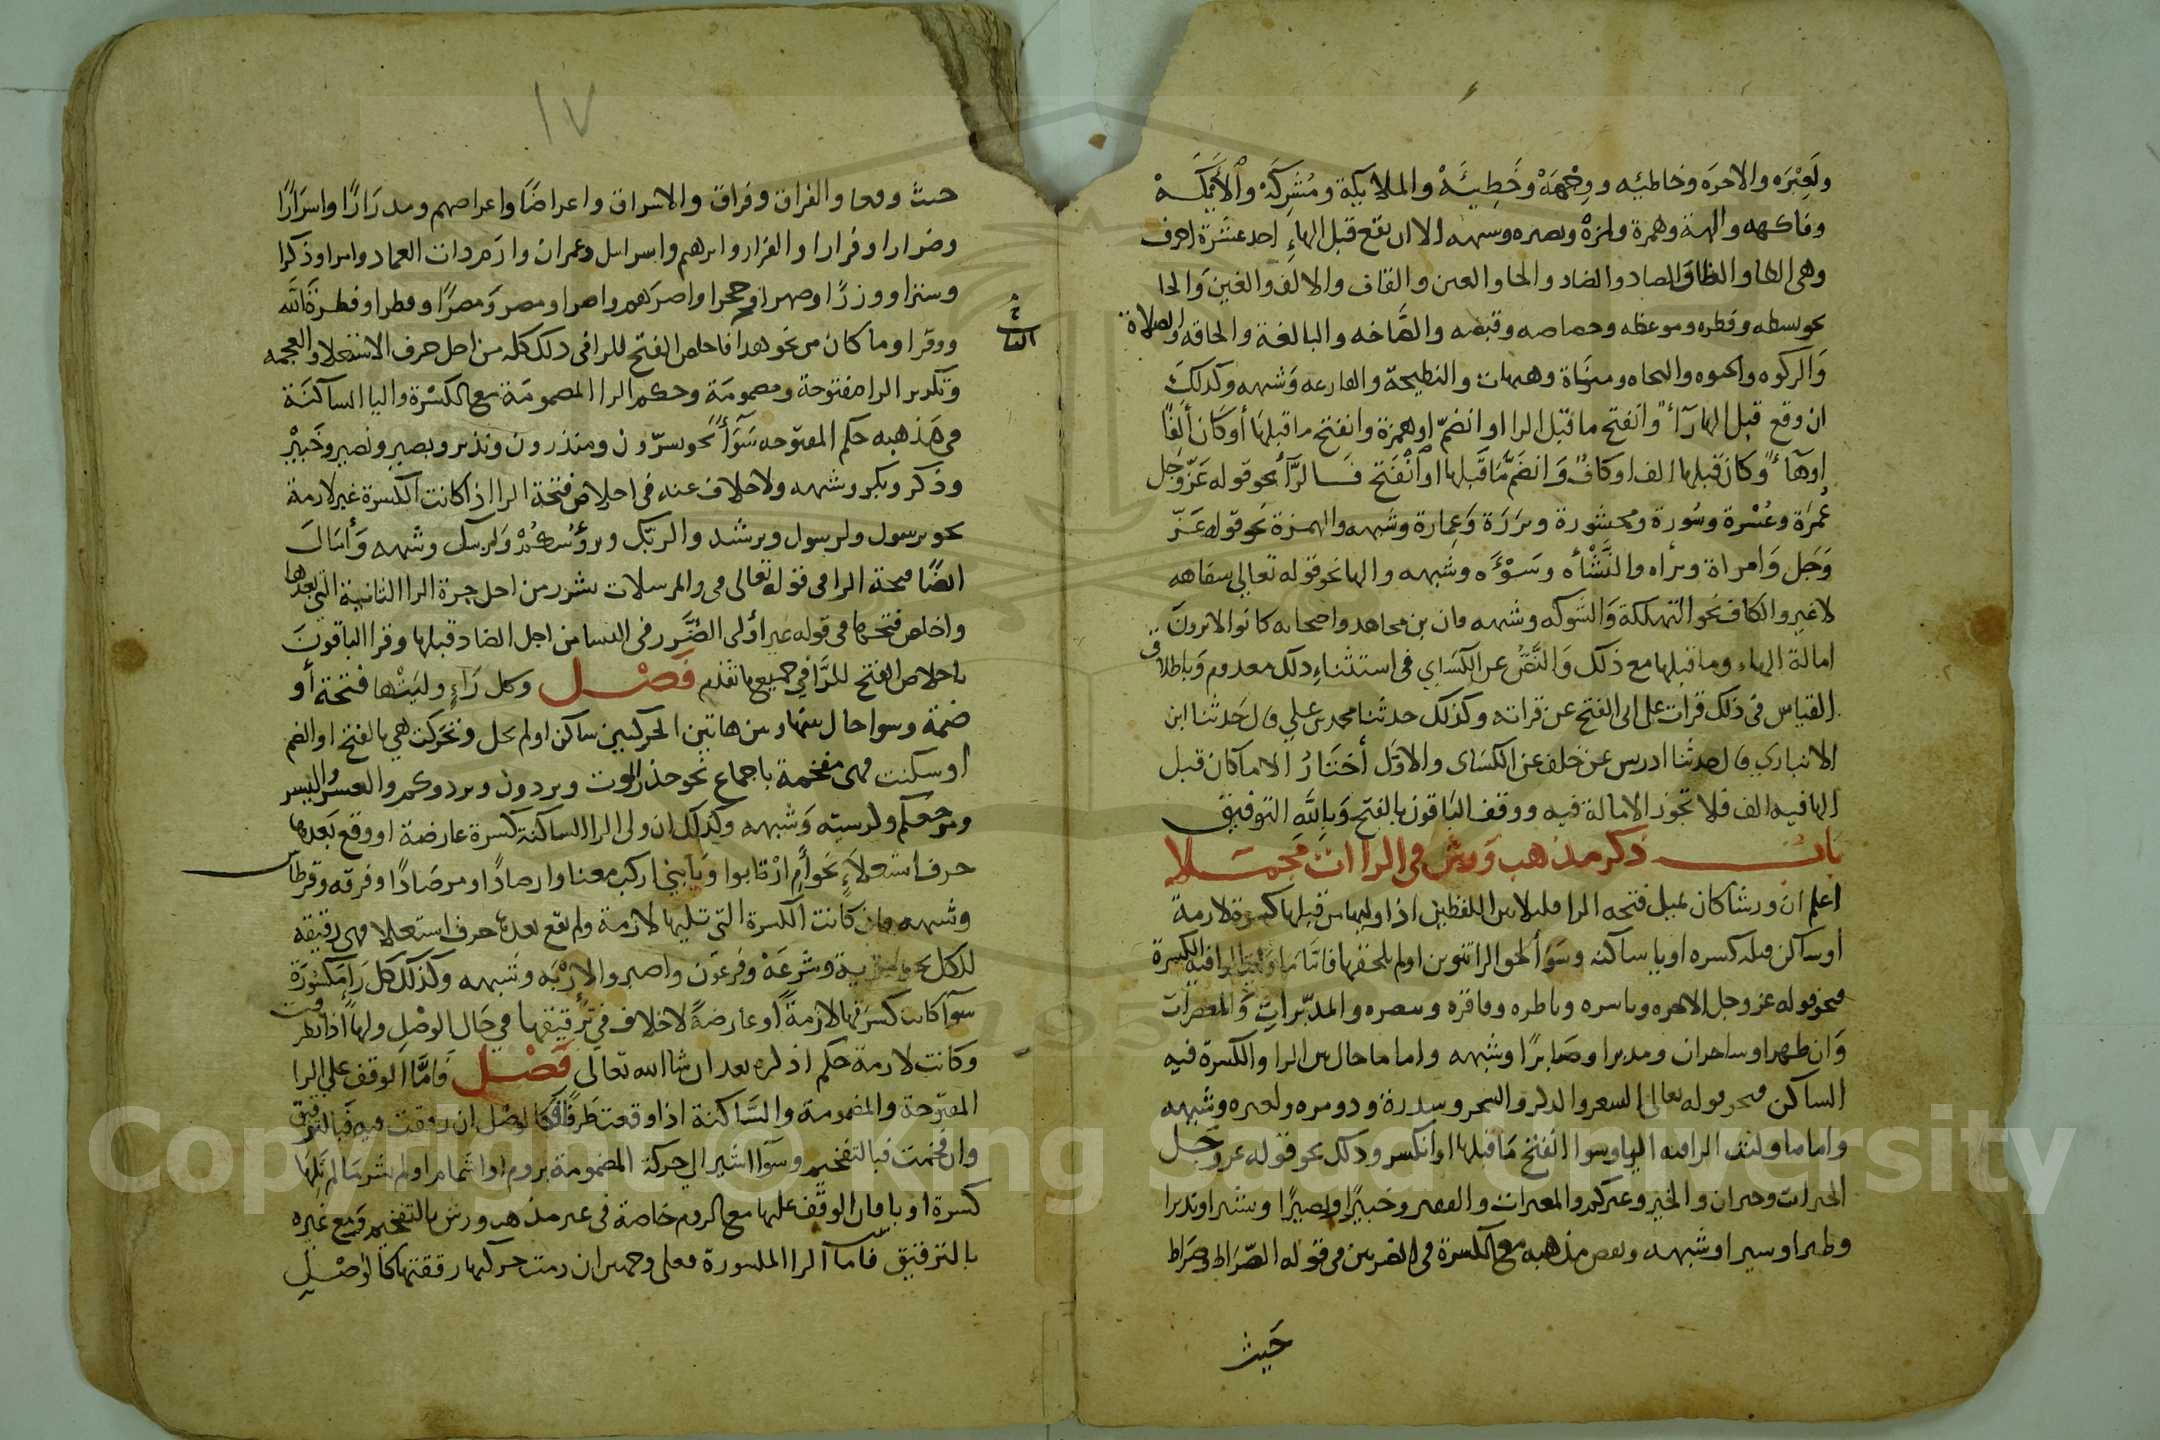 ولعبرة والاخرة وخاطئه ووجهة وخطيئة والملايكة ومشركة والأيكة
وفاكهه والهة وهمزة ولمزة وبصيره وشبهه الا ان يقع قبل الهاء احد عشرة احرف
وهى الطا والظا والصاد والضاد والحا والعين والقاف والالف والغين والخا
نحو بسطه وفطره وموعظه وخصاصه وقبضه والصاخه والبالغة والحاقه والصلاة
والزكوه والحيوه والنجاه ومنَاة وهيهات والنطيحة والقارعه وشبهه وكذلك
ان وقع قبل الها رآء وانفتح ما قبل الرا او انضمّ او همزة وانفتح ما قبلها أو كان ألفًا
اوهآءً وكان قبلها الف او كافٌ وانضمّ ما قبلها او انفتح فالرّآ نحو قوله عزّ وجل
عُمرَة وعُسْرة وسُورة ومحشورة وبرَرَة وعِمارة وشبهه والهمزة نحو قوله عَزّ
وَجَل وَامراة وبرأه والنَّشْأه وسَوْءَه وشبهه والها نحو قوله تعالي سفاهه
لا غير والكاف نحو التهلكة والشوكه وشبهه فان بن مجاهد واصحابه كانوا لا يرون
امالة الهاء وما قبلها مع ذلك وَالنَّصّ عن الكسَاي في استثناءِ ذلك معدوم وباطلاق
القياس في ذلك قرات على ابى الفتح عن قراته وكذلك حدثنا محمد بن علي قال حَدثنا ابن
الانباري قال حدثنا ادريس عن خلف عن الكسَاى والاوّل أختَارُ الا ما كان قبل
الها فيه الف فلا تجوز الامالة فيه ووقف الباقون بالفتح وَبالله التوفيق
باب ذكر مذهب وَرش فى الراات مُجملا
اعلم ان ورشا كان يميل فتحه الرا قليلا بين اللفظين اذا وليها من قبلها كسرة لازمة
أو ساكن قبله كسره او يا ساكنه وسَوَا لحق الرا تنوين او لم يلحقها فاما ما وليت الرا فيه الكسرة
فنحو قوله عز وجل الاخره وباسره وناظره وفاقرة وتبصره والمدبّراتِ وَالمعصرَات
وَان طهرا وساحران ومدبرا وصَابرًا وشبهه واما ما حال بين الرا والكسرة فيه
الساكن فنحو قوله تعالى الشعر والذكر والسحر وسدرة وذو مره ولعبره وشبهه
واما ما وليت الرا فيه اليا وسوا انفتح مَا قبلها او انكسر وذلك نحو قوله عز وجَل
الخيرات وحيران والخير وغيركم والمغيرات والفقير وخبيرًا وبصيرًا وبشيرا ونذيرا
وطيرا وسيرا وشبهه ونقص مذهبه مع الكسرة فى الضربين فى قوله الصّرَاط وصِرَاط
حَيث
١٧
حيث وقعا والفراق وفراق والاشراق واعراضًا واعراضهم ومدرَارًا واسرَارًا
وضرارا وفرارا والفرار وابرهيم واسرايل وعمران وارم ذات العماد وامرا وذكرا
وسترا ووزرًا وصهرا وحجرا واصرَهم واصرا ومصر وَمصرًا وقطرا وفطرةَ الله
ووقرا وما كان من نحو هذا فاخلص الفتح للرا فى ذلك كله من اجل حرف الاستعلا والعجمه
وتكرير الرا مفتوحة ومضمومَة وحكم الرا المضمومَة مع الكسْرة واليا الساكنَة
في مَذهبه حكم المفتوحه سَوَآءً نحو يسرّون ومنذرون ونذير وبصير ونصير وخَبيْر
وذكر وبكر وشبهه ولا خلاف عنه فى اخلاص فتحة الرا اذا كانت الكسرة غير لازمة
نحو برسول ولرسول وبرشيد والربّك وبرؤُسكُمْ وَلِرسل وشبهه وَأمَالَ
ايضًا فتحة الرا فى قوله تعالى فى والمرسلات بشرر من اجل جرة الرا الثانية التى بعدها
واخلص فتحها فى قوله غير اولى الضَّرر فى النسا من اجل الضاد قبلها وقرا الباقونَ
باخلاص الفتح للرَّا في جميع ما تقدم فَصْل وكل رَاءٍ وليَتْها فتحة أو
ضمة وسوا حال بينها وبين هاتين الحركتين ساكن او لم يحل وتحركت هي بالفتح او الضم
اوسكنت فهى مفخمة باجماع نحو حذر الموت ويردون ويردوكم والعسر واليسر
ومرجعكم ولرسيته وَشبهه وكذلك ان ولى الرا الساكنة كسرة عارضة او وقع بَعدها
حرف استعلاءٍ نحو أمِ ارْتابوا وَيَابني اركب معنا وارصادًا ومرصَادًا وفرقه وقرطاس
وشبهه فان كانت الكسرة التى تليها لازمة ولم يقع بعدها حرف استعلا فهى رقيقة
للكل نحو مرية وشرعَة وفرعَون واصبر والارْبَه وشبهه وكذلك كل رَا مكسورَة
سوآ كانت كسرتها لازمةً أو عارضةً لا خلاف في تَرقيقها في حَال الوصْلِ ولها اذا تطرفت
وكانت لازمة حكم اذكره بعد ان شا الله تعالى فَصْل فَامَّا الوقف علي الرا
المفتوحة والمضمومة والسَّاكنة اذا وقعت طَرفًا فكالوصْل ان رققت فيه فبالترقيق
وان فخمت فبالتفخيم وسوآ اشير الي حركة المضمومة بروم او اشمام او لم يشر مَا لم تَلها
كسرة او يا فان الوقف عليها مع الروم خاصة فى غير مذهب ورش بالتفخيم وَمع غيره
بالترقيق فاما الرا المكسورة فعلى وجهين ان رمت حركتها رققتها كالوصْل